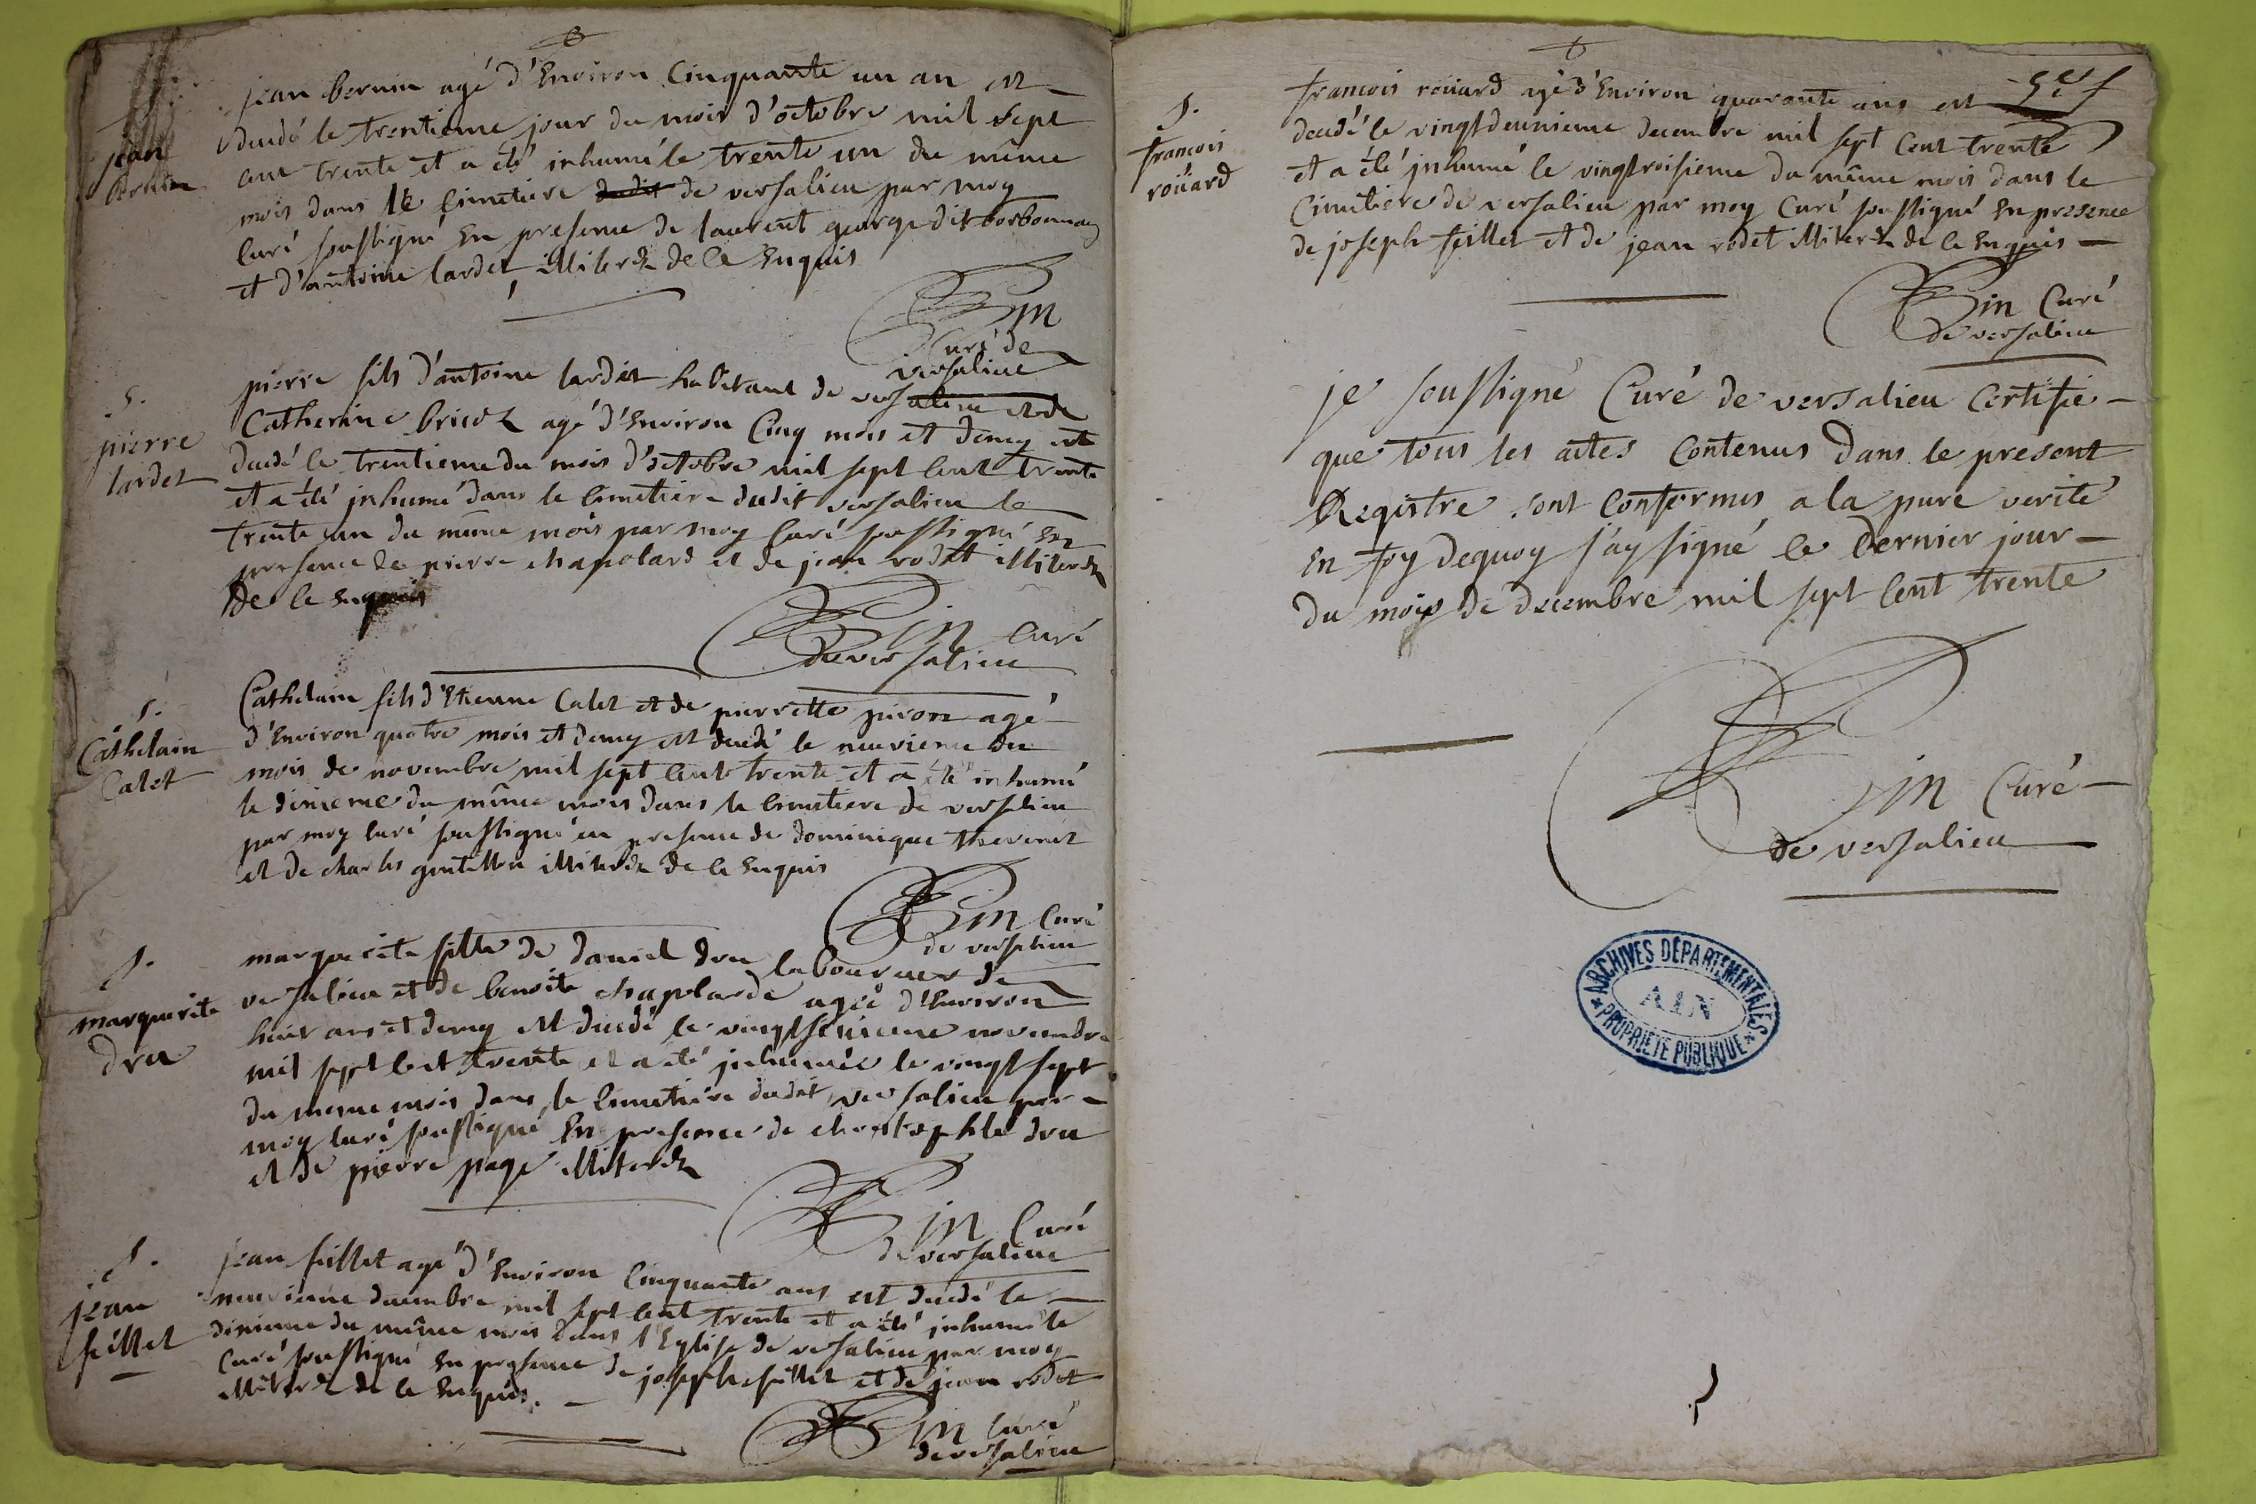 jean bernin agé d'Environ Cinquante un an est
decedé le trentieme jour du mois d'octobre mil sept
cent trente et a été inhumé le trente un du même
mois dans le Cimetiere dudit de versalieu par moy
Curé soussigné En presence de laurent george dit borbonnay
et d'antoine lardet illiterés de ce Enquis
jean
bernin
Curé de
versalieu
S.
pierre
lardet
pierre fils d'antoine lardet habitant de versalieu et de
Catherine agé d'Environ Cinq mois et demy est
decedé le trentieme du mois d'octobre mil sept cent trente
et a été inhumé dans le Cimetiere dudit versalieu le
trente un du même mois par moy Curé soussigné En
presence de pierre chapolard et de jean rodet illiterés
de ce Enquis
Curé
de versalieu
S.
Cathelain
Calet
Cathelain fils d'Etienne Calet et de pierrette piron agé
d'Environ quatre mois et demy est decedé le neuvieme du
mois de novembre mil sept cent trente et a été inhumé
le dixieme du même mois dans le Cimetiere de versalieu
par moy Curé soussigné en presence de dominique thevenet
et de charles illiterés de ce Enquis
Curé
de versalieu
S.
marguerite
dru
marguerite fille de daniel dru laboureur de
versalieu et de benoite chaplarde agée d'Environ
huit ans et demy est decedé le vingt sixieme novembre
mil sept cent trente et a été inhumée le vingt sept
du meme mois dans le Cimetiere dudit versalieu par
moy Curé soussigné En presence de christophle dru
et de pierre page illiterés
Curé
de versalieu
S.
jean
feillet
jean feillet agé d'Environ Cinquante ans est decedé le
neuvieme decembre mil sept cent trente et a été inhumé le
dixieme du même mois dans l'Eglise de versalieu par moy
Curé soussigné En presence de joseph feillet et de jean rodet
illiterés de ce Enquis.
Curé
de versalieu
S.
francois
roüard
francois roüard agé d'Environ quarante ans est
decedé le vingtdeuxieme decembre mil sept Cent trente
et a été inhumé le vingtroisieme du même mois dans le
Cimetiere de versalieu par moy Curé soussigné En presence
de joseph feillet et de jean rodet illiterés de ce Enquis
Curé
de versalieu
je soussigné Curé de versalieu Certifie
que tous les actes Contenus dans le present
Registre sont Conformes a la pure verité
En foy dequoy j'ay signé le dernier jour
du mois de decembre mil sept Cent trente
Curé
de versalieu
ARCHIVES DÉPARTEMENTALES
AIN
PROPRIÉTÉ PUBLIQUE